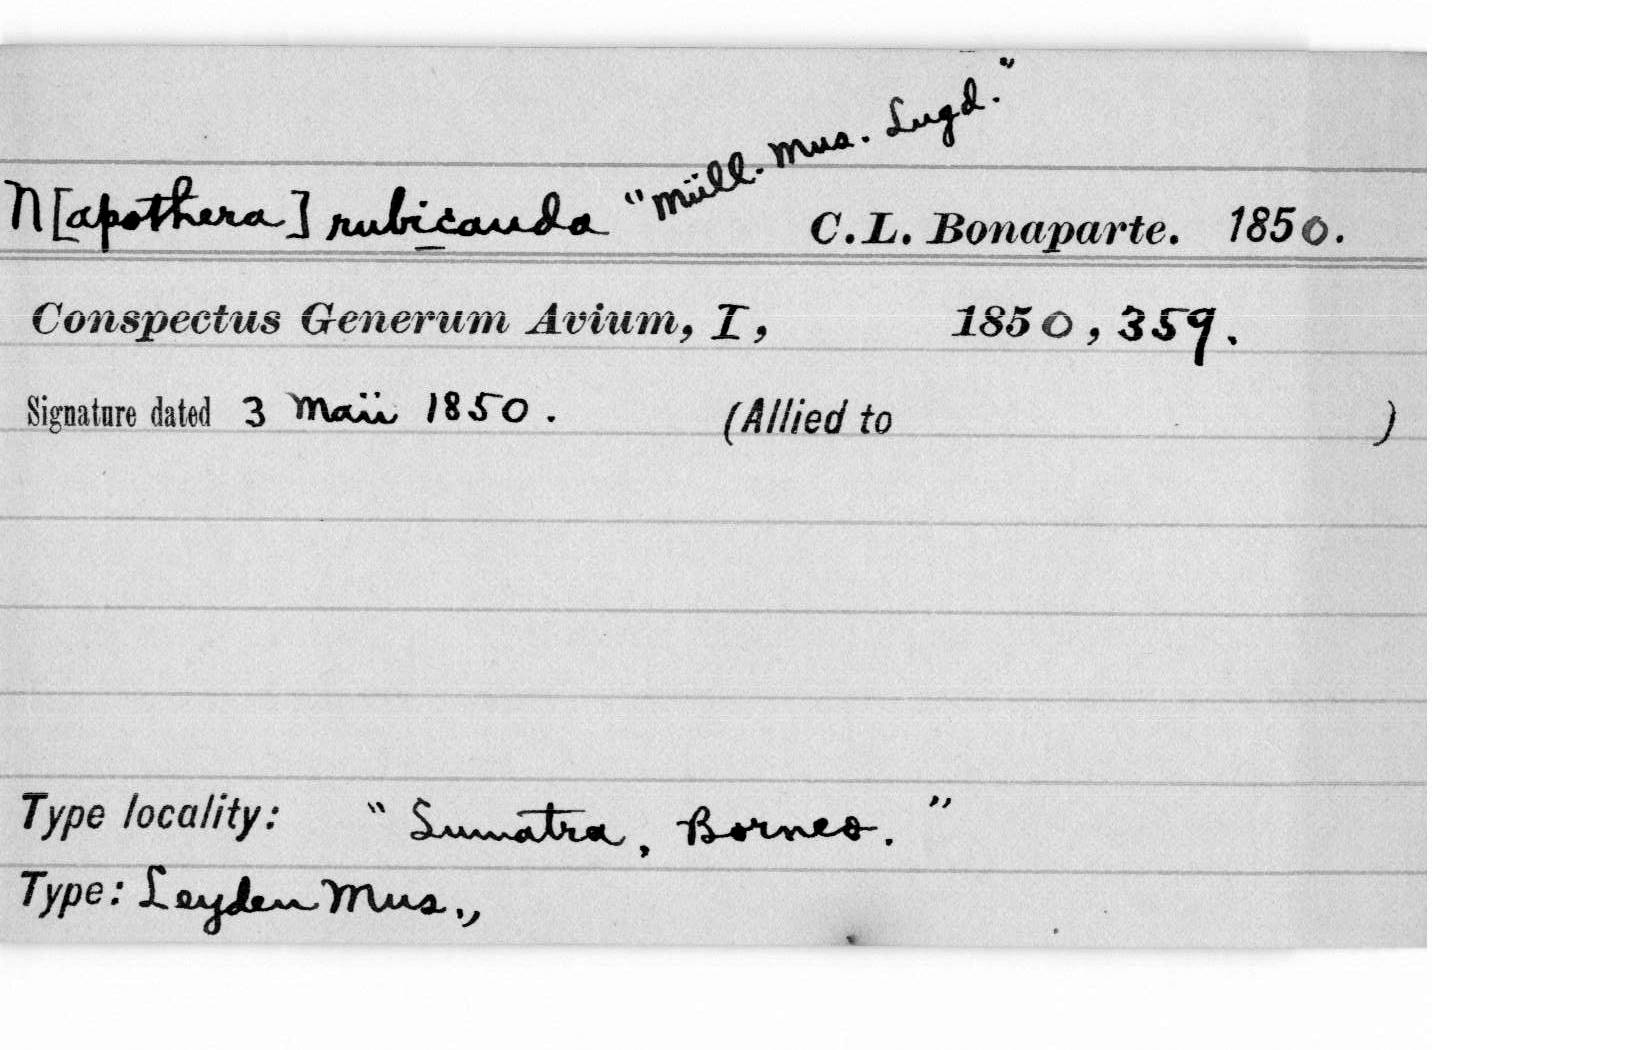 N[apothera] rubicauda "Müll. Mus. Lugd." C.L. Bonaparte. 1850.
Conspectus Generum Avium, I, 1850, 359.
Signature dated 3 Maii 1850. (Allied to )
Type locality: "Sumatra, Borneo."
Type: Leyden Mus.,